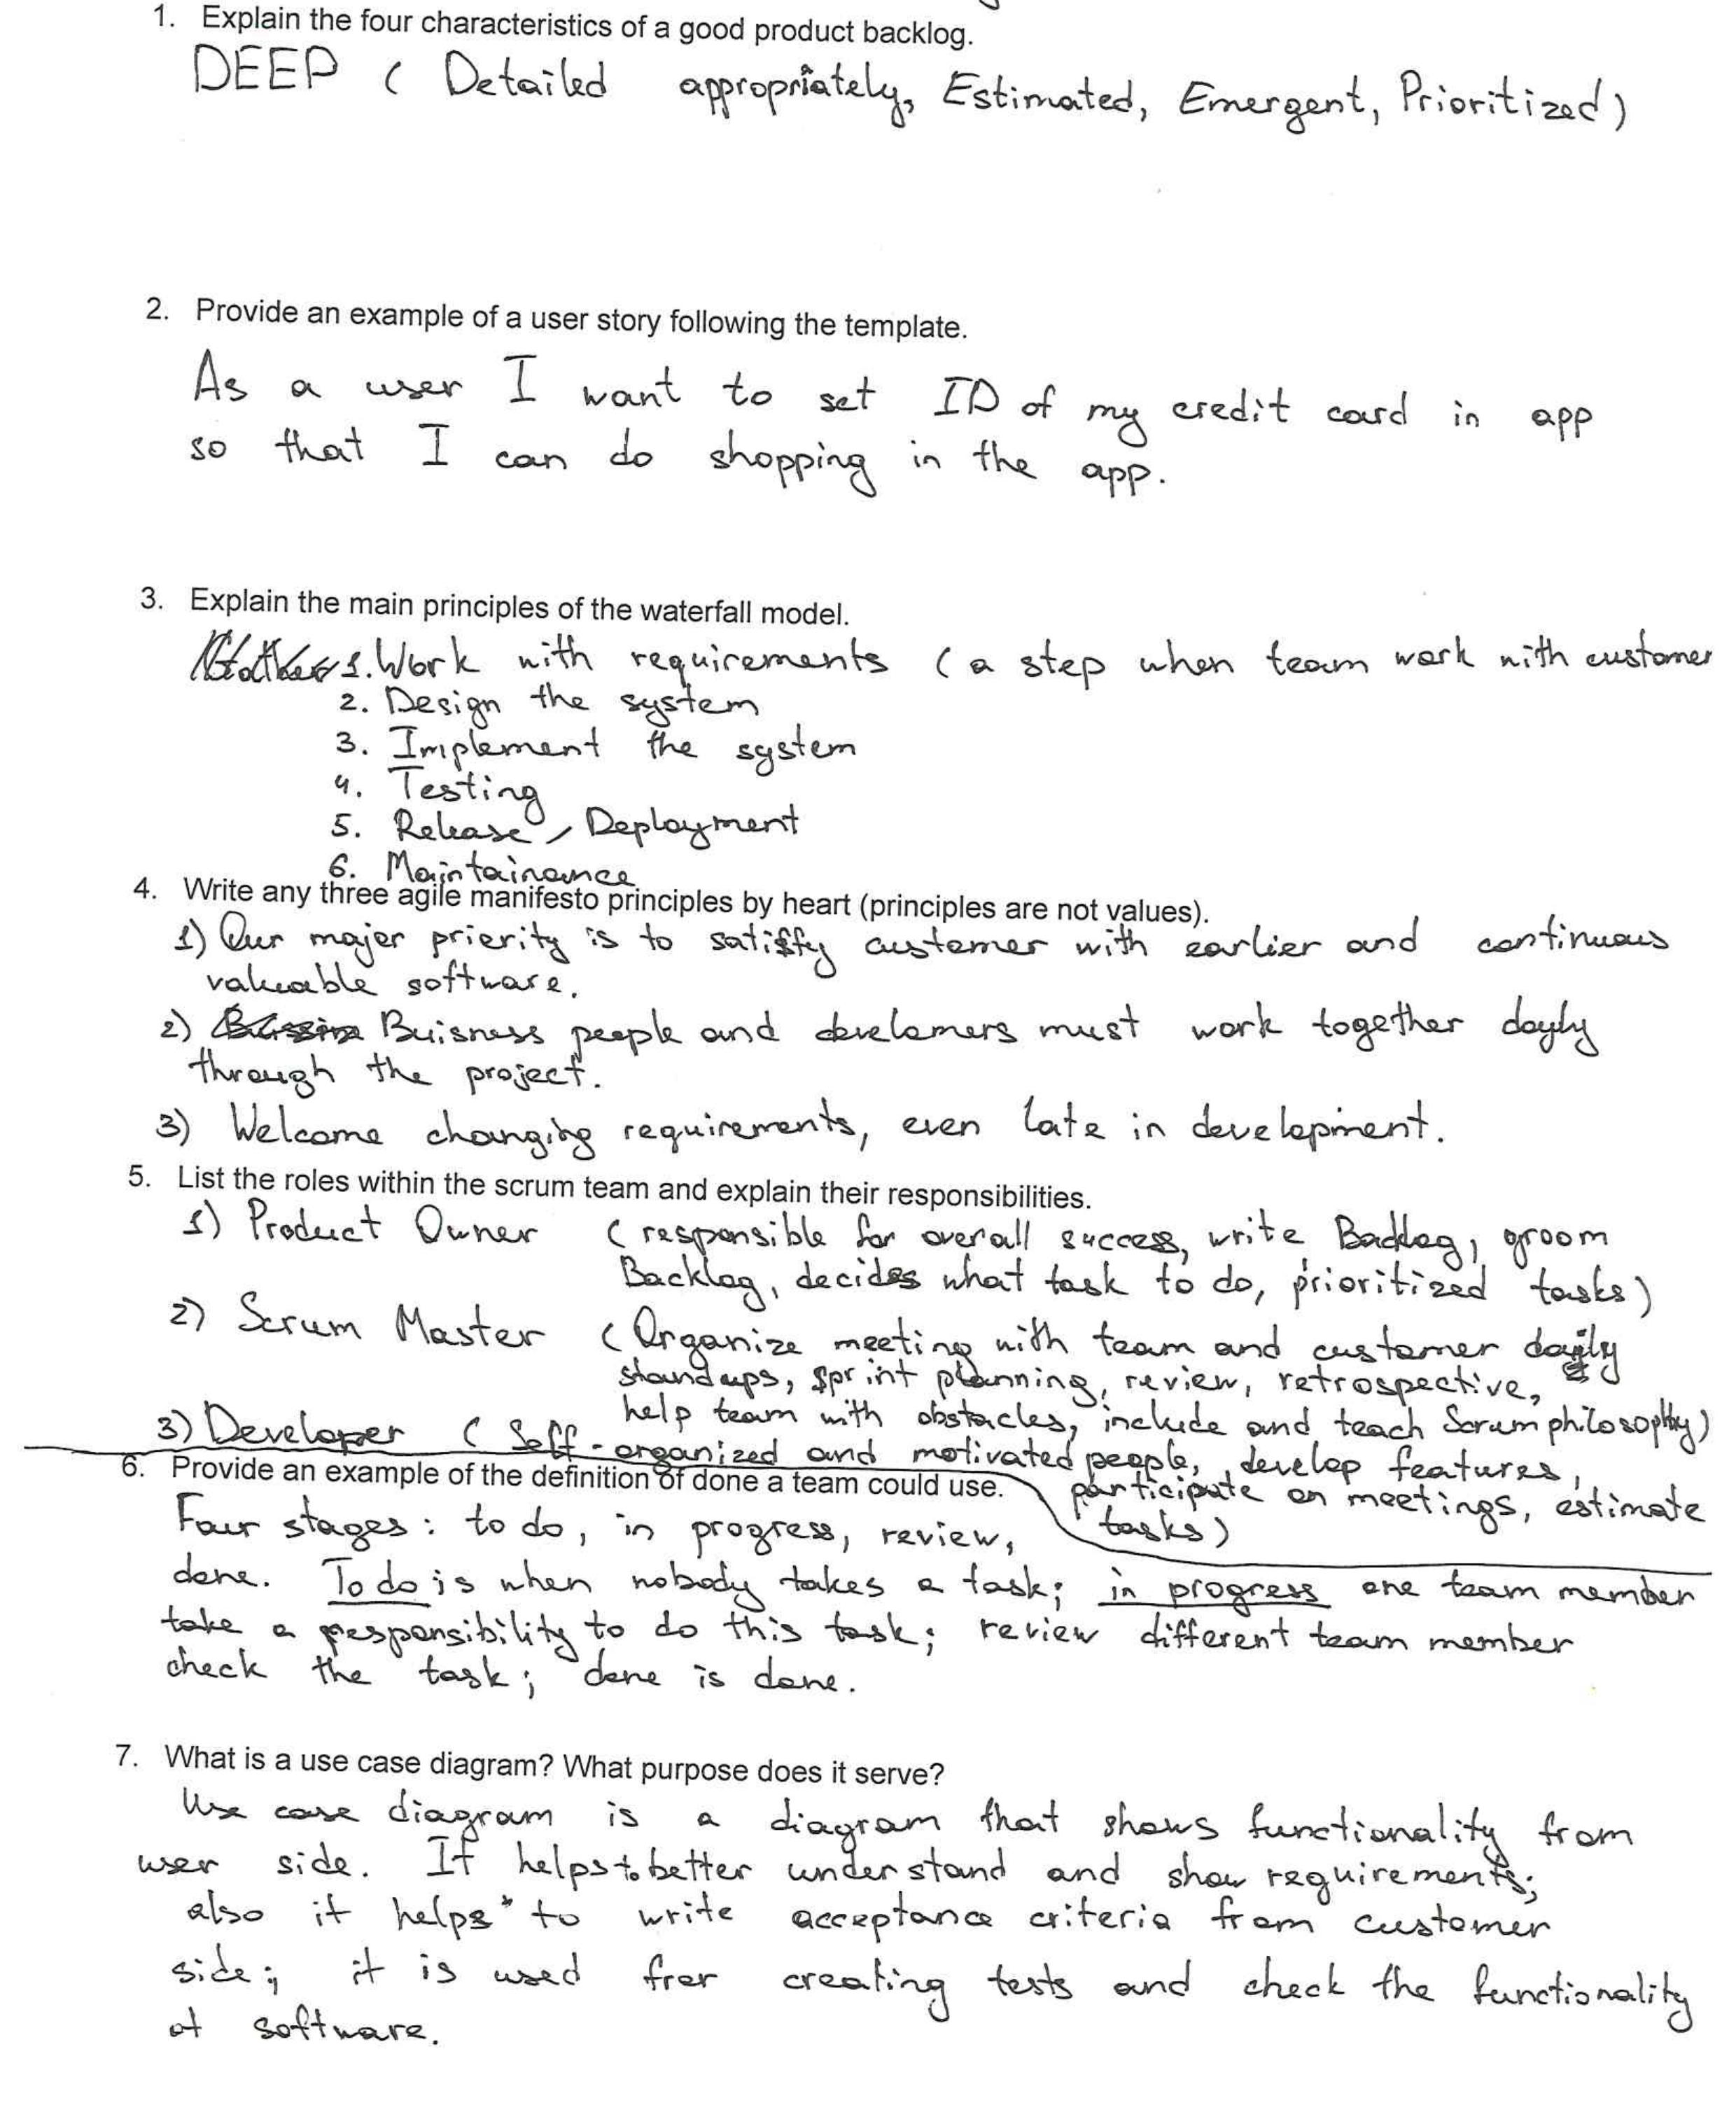 1. Explain the four characteristics of a good product backlog.
DEEP ( Detailed appropriately, Estimated, Emergent, Prioritized)
2. Provide an example of a user story following the template.
As a user I want to set ID of my credit card in app
so that I can do shopping in the app.
3. Explain the main principles of the waterfall model.
1. Work with requirements ( a step when team work with customer
2. Design the system
3. Implement the system
4. Testing
5. Release / Deployment
6. Maintainance
4. Write any three agile manifesto principles by heart (principles are not values).
1) Our major priority is to satisfy customer with earlier and continuous
valuable software.
2) Buisness people and develomers must work together dayly
through the project.
3) Welcome changing requirements, even late in development.
5. List the roles within the scrum team and explain their responsibilities.
1) Product Owner ( responsible for overall success, write Backlog, groom
Backlog, decides what task to do, prioritized tasks)
2) Scrum Master ( Organize meeting with team and customer daily
standups, sprint planning, review, retrospective,
help team with obstacles, include and teach Scrum philosophy)
3) Developer ( Self-organized and motivated people, develop features,
participate on meetings, estimate
tasks)
6. Provide an example of the definition of done a team could use.
Four stages: to do, in progress, review,
done. To do is when nobody takes a task; in progress one team member
take a responsibility to do this task; review different team member
check the task; done is done.
7. What is a use case diagram? What purpose does it serve?
Use case diagram is a diagram that shows functionality from
user side. It helps to better understand and show requirements;
also it helps to write acceptance criteria from customer
side; it is used for creating tests and check the functionality
of software.